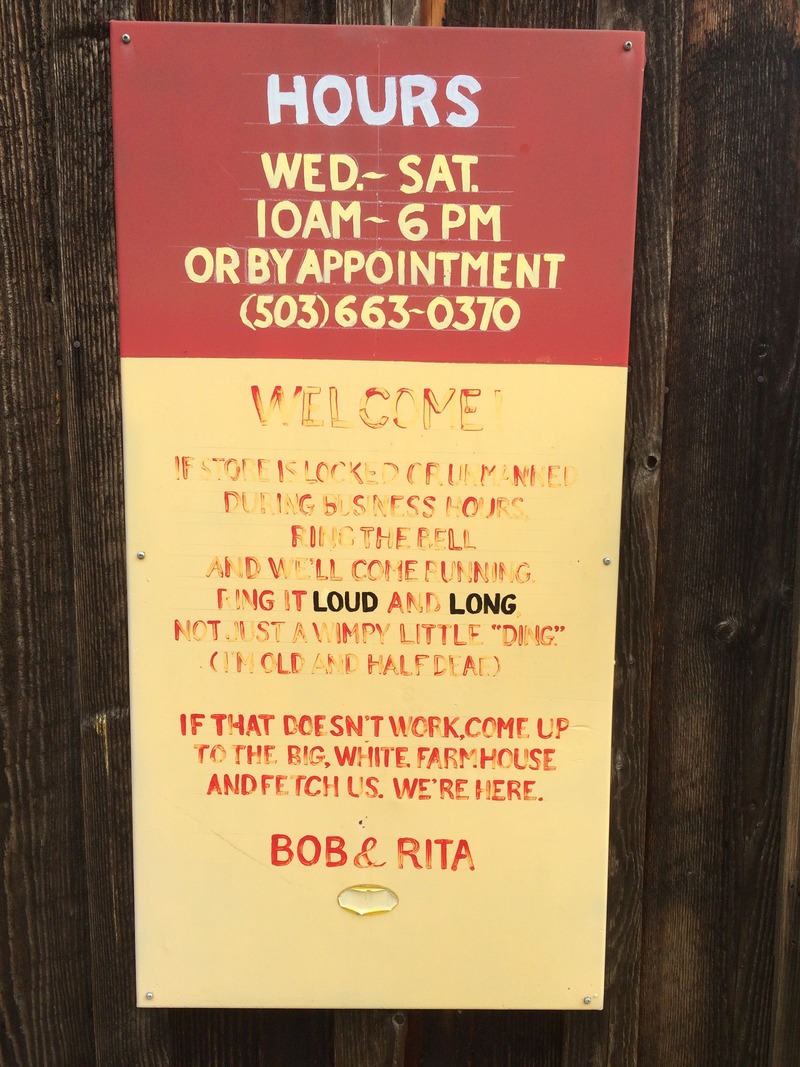 HOURS
WED.~ SAT.
10AM~6 PM
OR BY APPOINTMENT
(503)663~0370
WELCOME!
IF STORE IS LOCKED OR UNMANNED
DURING BUSINESS HOURS,
RING THE BELL
AND WE'LL COME RUNNING.
RING IT LOUD AND LONG,
NOT JUST A WIMPY LITTLE "DING."
(I'M OLD AND HALF DEAF)
IF THAT DOESN'T WORK, COME UP
TO THE BIG, WHITE FARMHOUSE
AND FETCH US. WE'RE HERE.
BOB & RITA